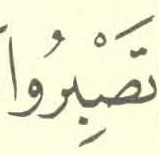 تَصْبِرُوا